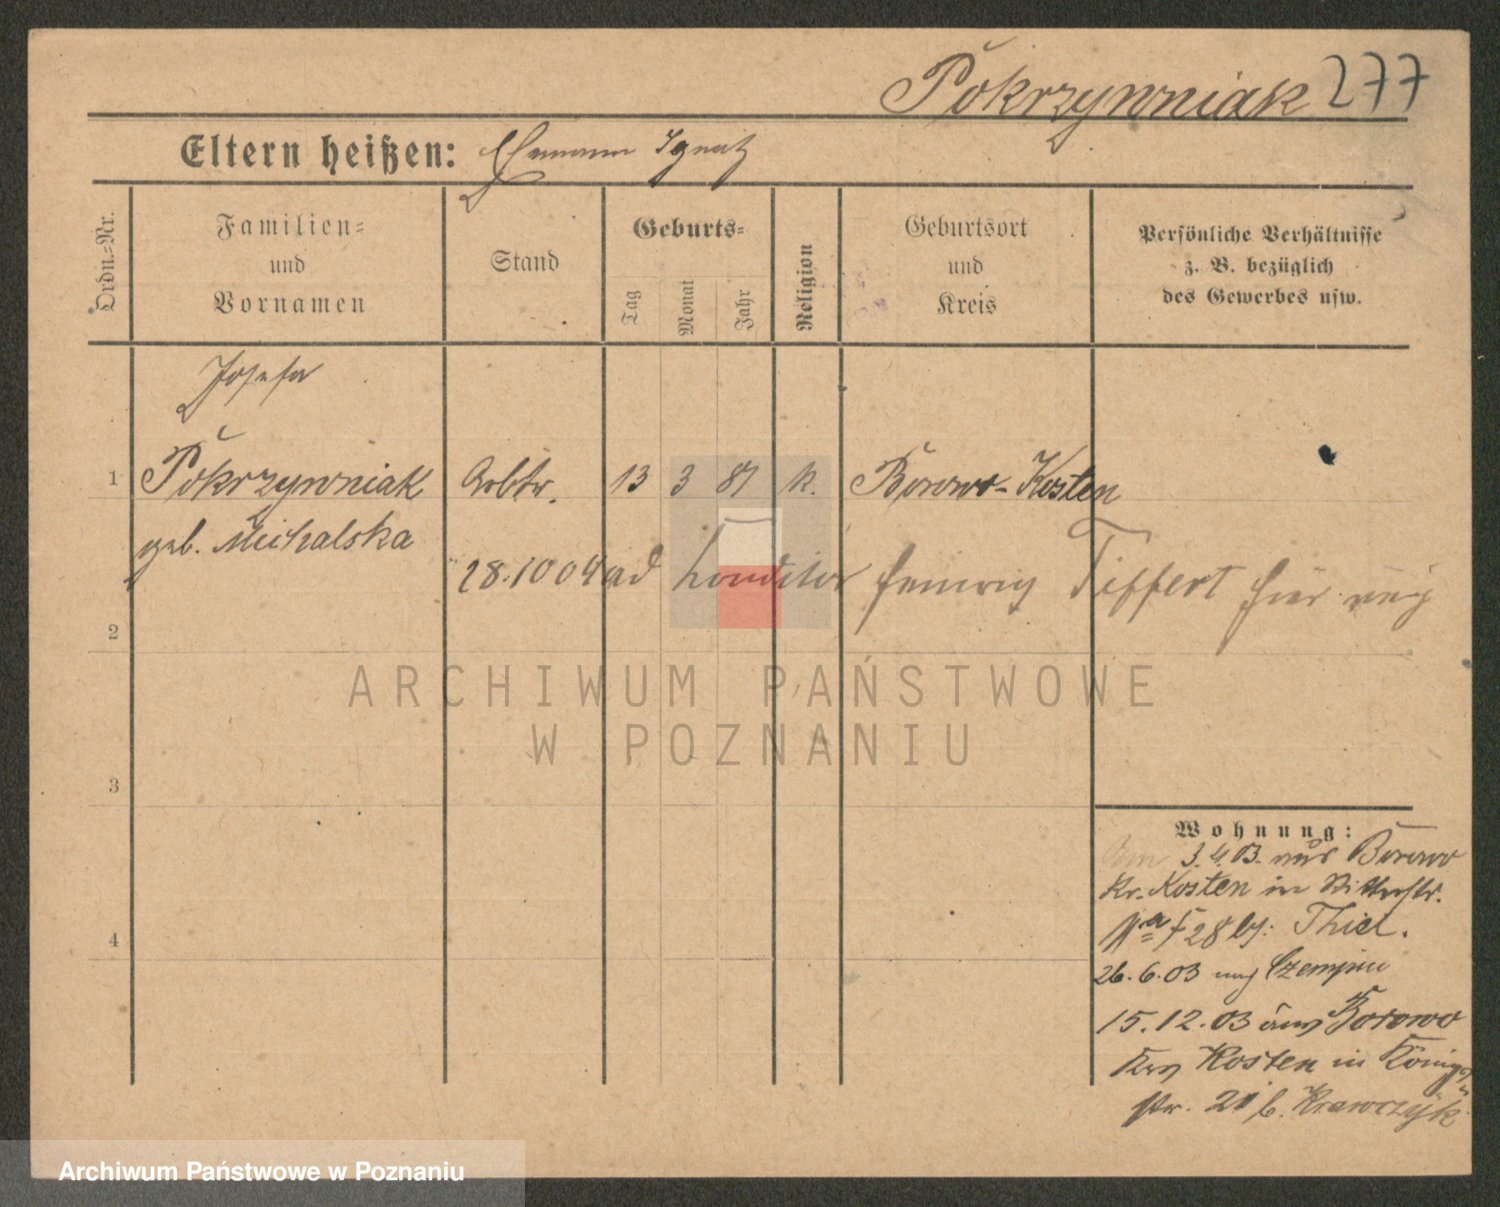 Pokrzywniak 277
Eltern heißen: Ehemann Ignatz
Ordn.-Nr.
Familien- und Vornamen
Stand
Geburts-
Tag
Monat
Jahr
Religion
Geburtsort und Kreis
Persönliche Verhältnisse z. B. bezüglich des Gewerbes usw.
Josefa
1 Pokrzywniak Arbtr. 13 3 81 k. Borowo-Kosten
geb. Michalska
28.10 04 ad Konditor Tiffert hier
2
ARCHIWUM PAŃSTWOWE
W POZNANIU
3
4
Wohnung:
3.4.03. aus Borowo
Kr. Kosten in Ritterstr.
28 bj. Thiel.
26.6.03 nach Czempin
15.12.03 aus Borowo
Kosten in Königs-
str. 21 b. Krawczyk
Archiwum Państwowe w Poznaniu